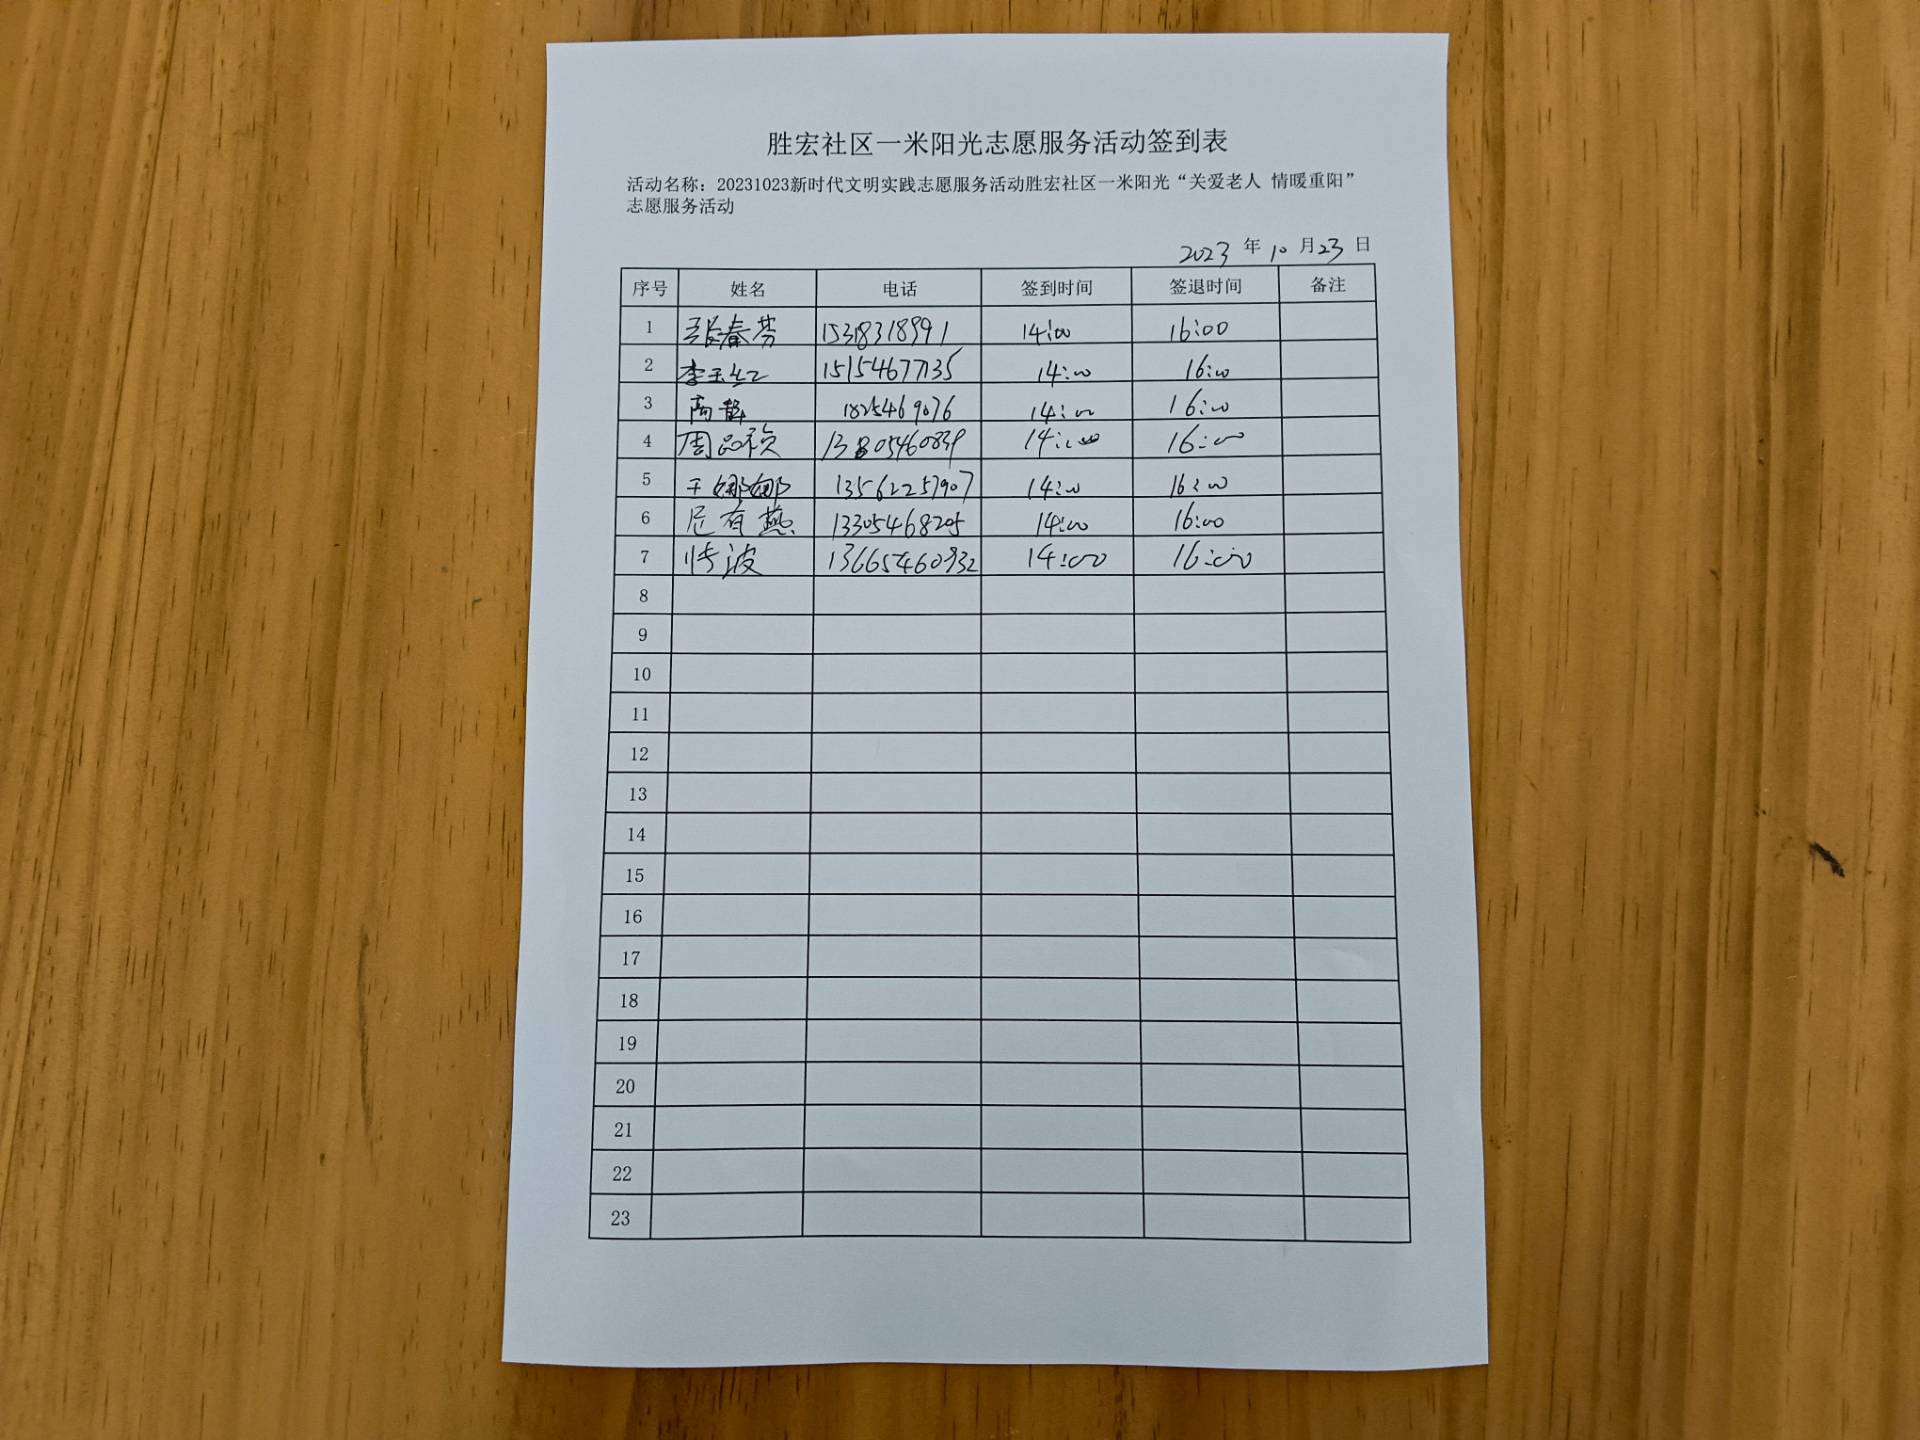 胜宏社区一米阳光志愿服务活动签到表
活动名称：20231023新时代文明实践志愿服务活动胜宏社区一米阳光“关爱老人 情暖重阳”
志愿服务活动
2023 年 10 月 23 日
序号 姓名 电话 签到时间 签退时间 备注
1 张春芳 15318318991 14:00 16:00
2 李玉红 15154677135 14:00 16:00
3 高静 1825469076 14:00 16:00
4 周品 14:00 16:00
5 王娜娜 13562257907 14:00 16:00
6 尼有燕 13305468205 14:00 16:00
7 波 13665460932 14:00 16:00
8
9
10
11
12
13
14
15
16
17
18
19
20
21
22
23